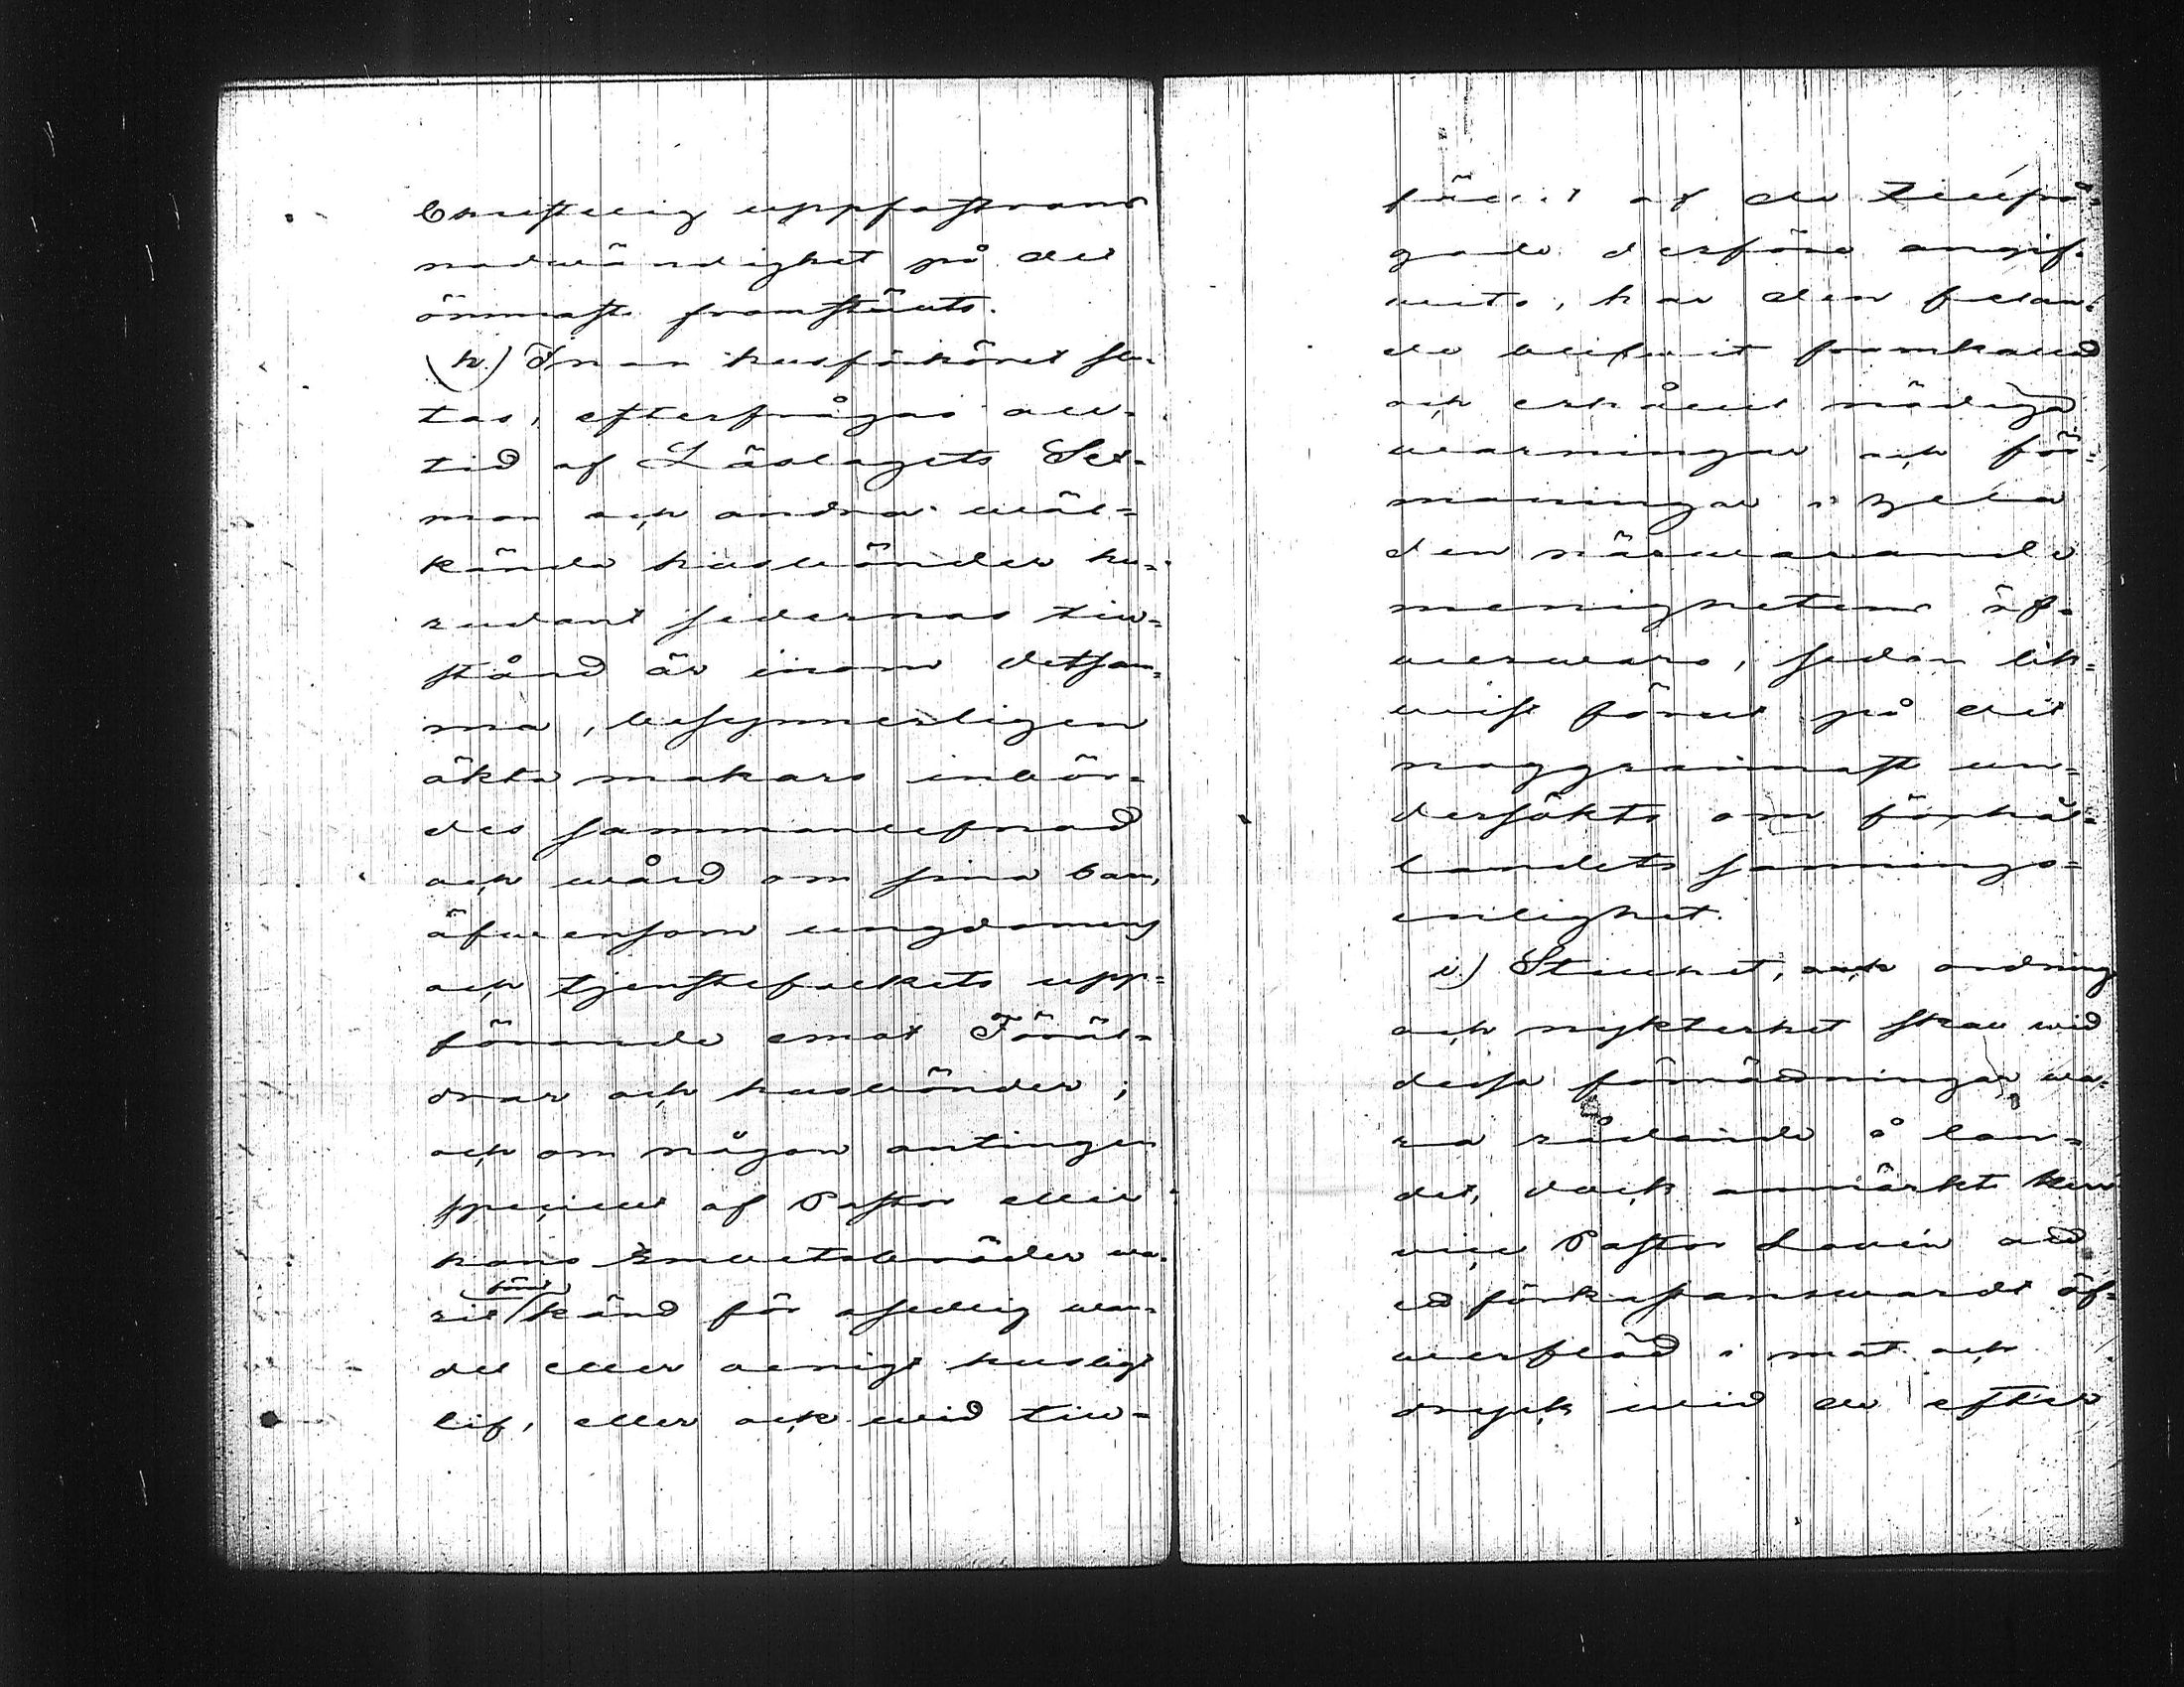 Christelig uppfostrans
nodwändighet på det
ömmaste framstäl̃ts.
h) Innan husförhöret slu-
tas, efterfrågas all-
tid af Läslagets Sex-
man och andra wäl-
kände husbönder hu-
rudant sedernas till-
stånd är inom detsam-
ma, besynnerligen
äkta makars inbör-
des sammanlefnad
och wård om sina barn,
äfwensom ungdomens
och tjenstefolkets upp-
förande emot Föräl-
drar och husbönder;
och om någon antingen
specielt af Pastor eller
hans Embetsbröder wa-
rit känd för osedlig wan-
del eller oenigt husligt
lif, eller ock wid till-
fället af de tillfrå-
gade derföre angif-
wits, har den felan-
de blifwit framkallad
och erhållit nödiga
warningar och för-
maningar i hela
den närwarande
menighetens öf-
werwaro, sedan lik-
wist förut på det
noggrannaste un-
dersökts om förhål-
landets sannings-
enlighet.
i) Stillhet, ordning
och nykterhet skall wid
dessa förrättningar wa-
ra rådande å lan-
det, dock anmärkte Herr
vice Pastor Lavén att
ett förkastanswärdt öf-
werflöd i mat och
dryck wid de efter